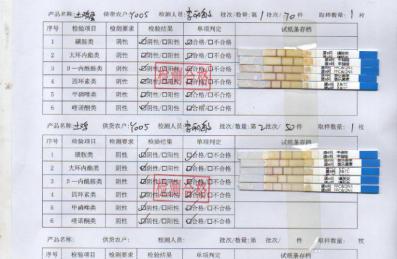 产品名称: 土鸡 供货农户: Y005 检测人员: 批次/数量: 第 1 批次/ 70 件 取样数量: 1 枚
序号 检验项目 检测要求 检验结果 单项判定 试纸条存档
1 磺胺类 阴性 ☑阴性/□阳性 ☑合格/□不合格
2 大环内酯类 阴性 ☑阴性/□阳性 ☑合格/□不合格
3 β-内酰胺类 阴性 ☑阴性/□阳性 ☑合格/□不合格
4 四环素类 阴性 ☑阴性/□阳性 ☑合格/□不合格
5 甲硝唑类 阴性 ☑阴性/□阳性 ☑合格/□不合格
6 喹诺酮类 阴性 ☑阴性/□阳性 ☑合格/□不合格
检测合格
产品名称: 土鸡 供货农户: Y005 检测人员: 批次/数量: 第 2 批次/ 50 件 取样数量: 1 枚
序号 检验项目 检测要求 检验结果 单项判定 试纸条存档
1 磺胺类 阴性 ☑阴性/□阳性 ☑合格/□不合格
2 大环内酯类 阴性 ☑阴性/□阳性 ☑合格/□不合格
3 β-内酰胺类 阴性 ☑阴性/□阳性 ☑合格/□不合格
4 四环素类 阴性 ☑阴性/□阳性 ☑合格/□不合格
5 甲硝唑类 阴性 ☑阴性/□阳性 ☑合格/□不合格
6 喹诺酮类 阴性 ☑阴性/□阳性 ☑合格/□不合格
检测合格
产品名称: 供货农户: 检测人员: 批次/数量: 第 批次/ 件 取样数量: 枚
序号 检验项目 检测要求 检验结果 单项判定 试纸条存档